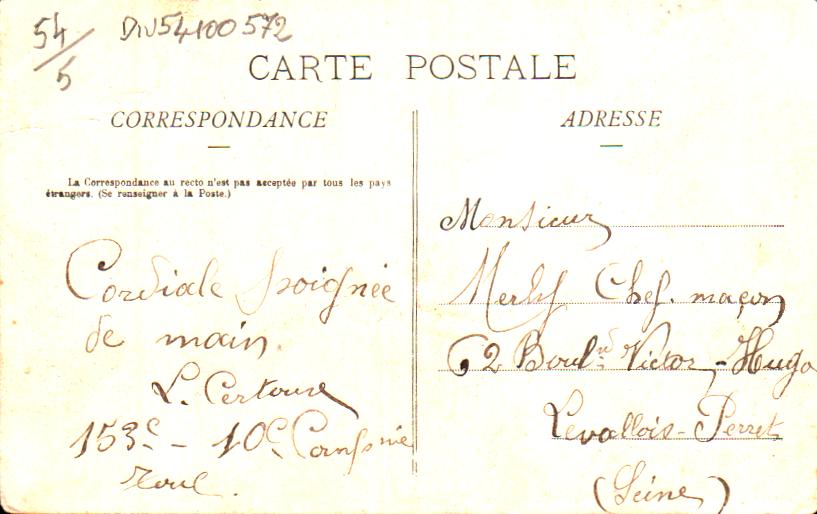 54/5
DIV54100572
CARTE POSTALE
CORRESPONDANCE
La Correspondance au recto n'est pas acceptée par tous les pays
étrangers. (Se renseigner à la Poste.)
Cordiale poignée
de main.
L.
153e - 10e Compnie
Toul.
ADRESSE
Monsieur
Chef. maçon
62 Bould Victor-Hugo
Levallois-Perret
(Seine)